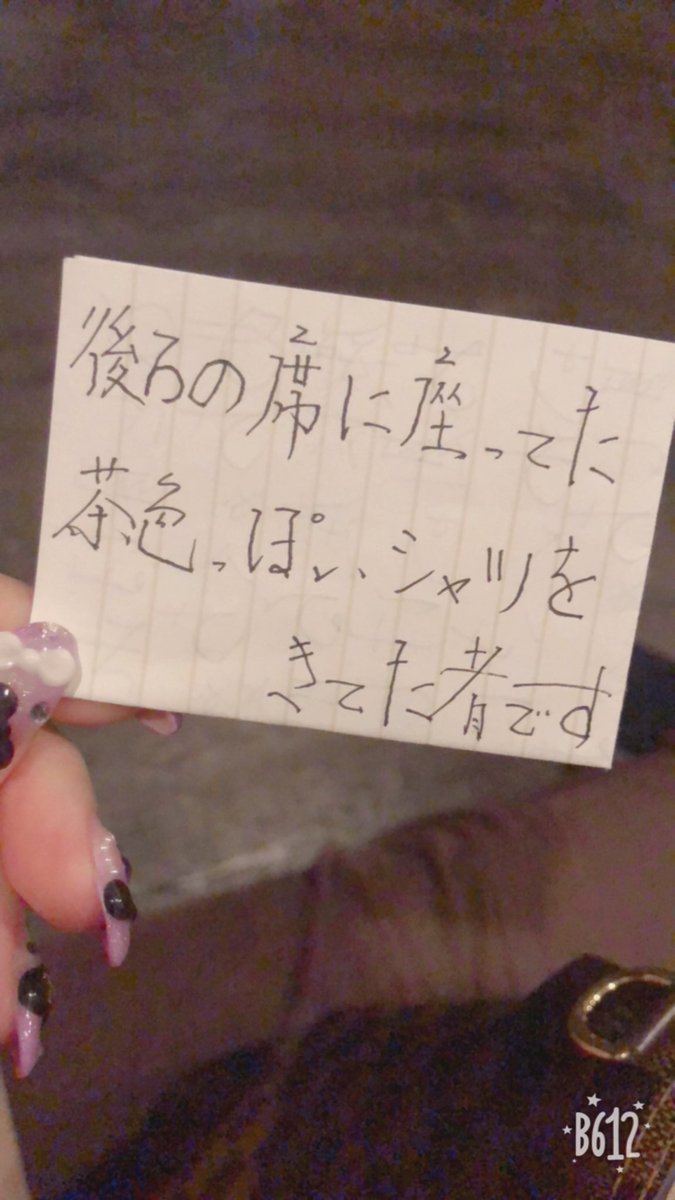 後ろの席に座ってた
茶色っぽい、シャツを
きてた者です
B612